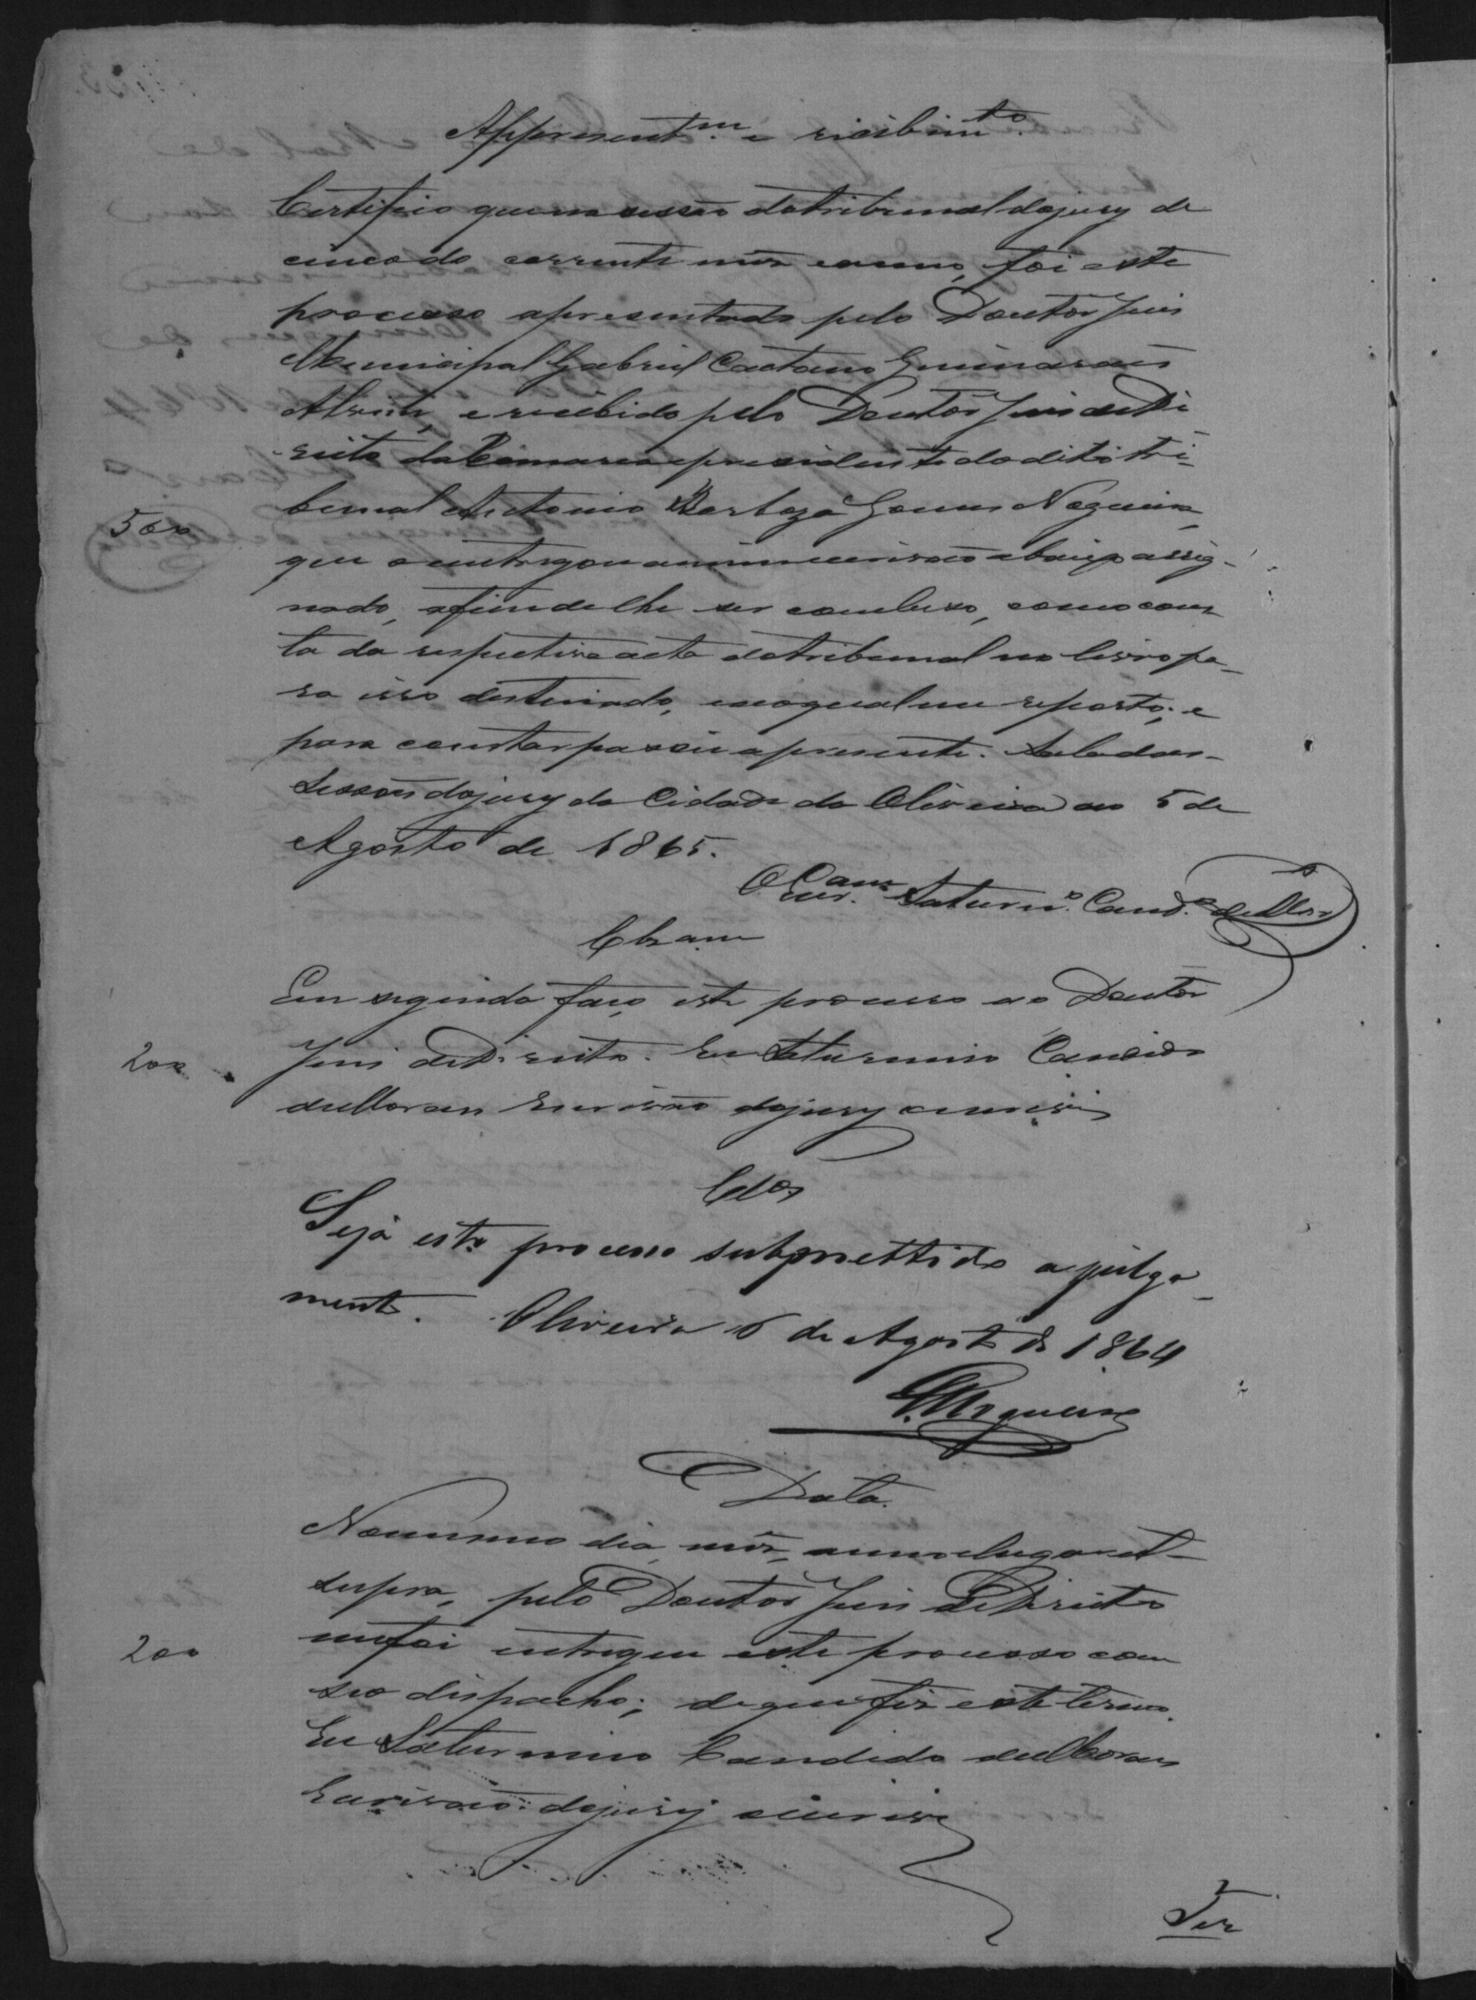 Appresent.m e recibim.to
Certifico que na sessão do tribunal do jury de
cinco do corrente mês e anno, foi este
processo apresentado pelo Doutor Juis
Municipal Gabriel Caetano Guimarães
Alvim, e recebido pelo Doutor Juis de Di
reito da Comarca e presidente do dito tri-
500 bunal Antonio Barboza Gomes Nogueira,
que o entregou a mim escrivão abaixo assig-
nado, afim de lhe ser concluso, como cons
ta da respectiva acta do tribunal no livro pa-
ra isso destinado, ao qual me reporto; e
para constar passei a presente. Sala das
Sessões do jury da Cidade da Oliveira ao 5 de
Agosto de 1865.
O Escr. Saturn.o Cand.o de Mor
Clzam
Em seguida faço este processo ao Doutor
200 Juis de Direito. Eu Saturnino Candido
de Moraes Escrivão do jury o escrevi
Cdos
Seja este processo submettido a julga-
mento. Oliveira 6 de Agosto de 1864
G. Nogueira
Data
No mesmo dia, mês, anno e lugar ut
supra, pelo Doutor Juis de Direito
200 me foi entregue este processo com
seo dispacho; de que fiz este termo.
Eu Saturnino Candido de Moraes
Escrivão do jury o escrevi
Ter